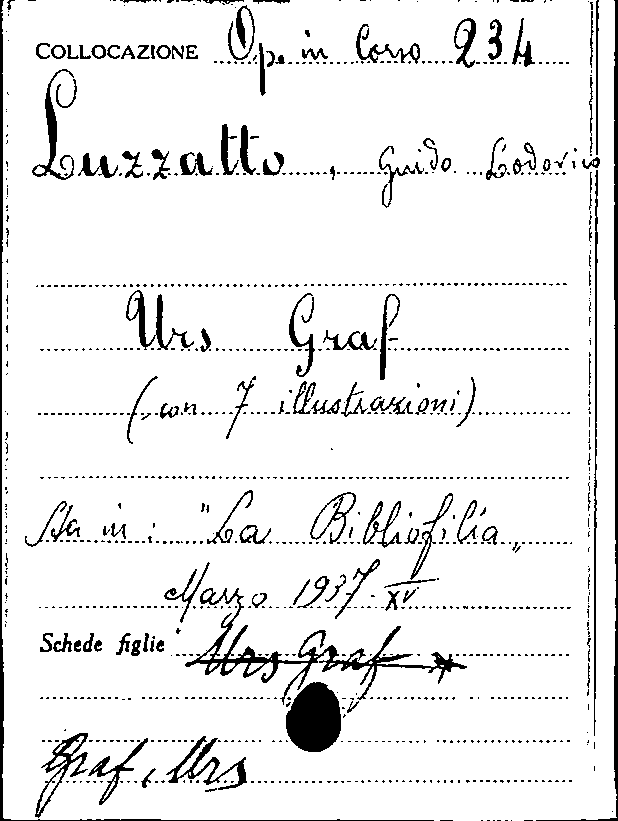 COLLOCAZIONE Op. in Corso 234
Luzzatto, Guido Lodovico
Urs Graf
(con 7 illustrazioni)
Sta in: "La Bibliofilia„
Marzo 1937-XV
Schede figlie Urs Graf
Graf, Urs